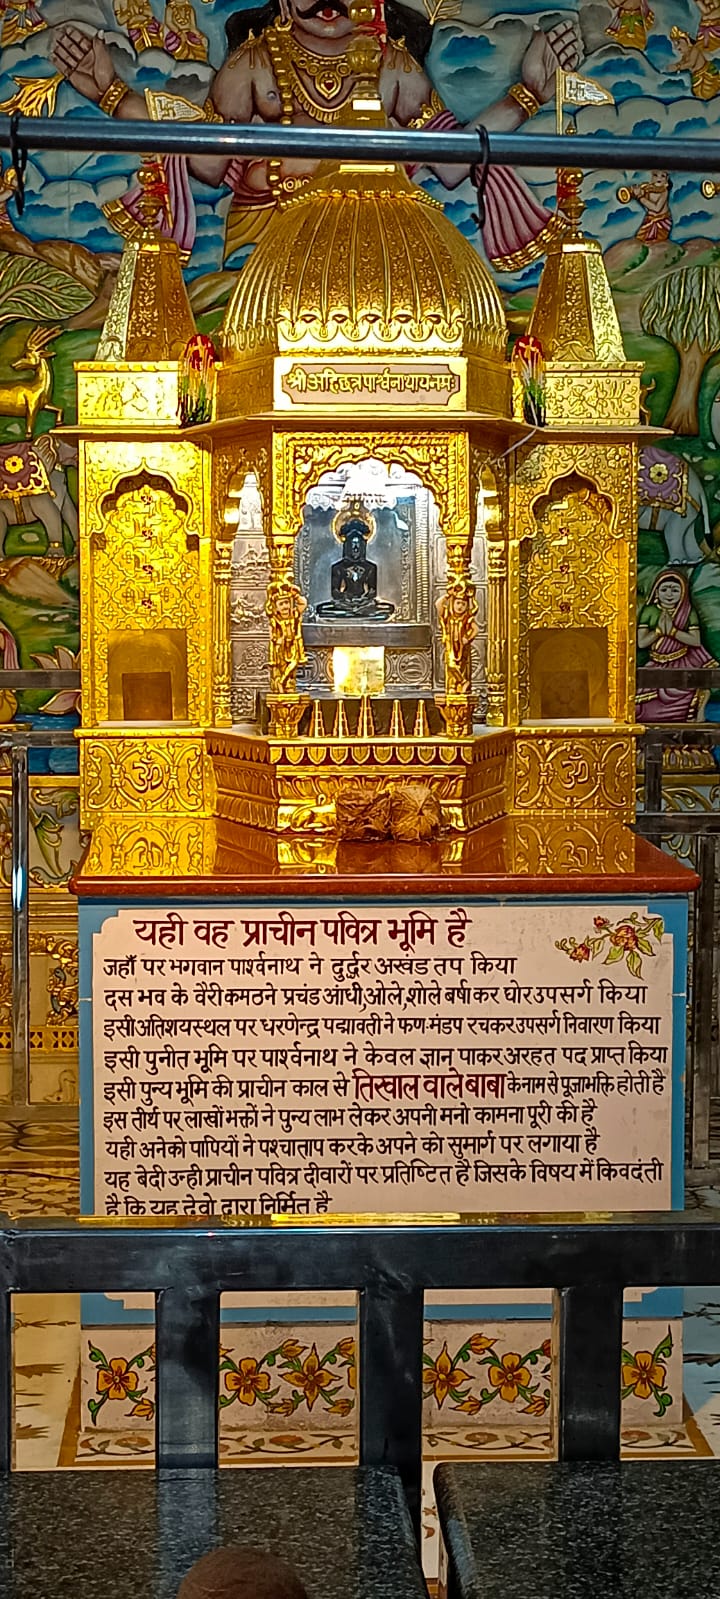 श्री अहिच्छत्र पार्श्वनाथाय नमः
यही वह प्राचीन पवित्र भूमि है
जहाँ पर भगवान पार्श्वनाथ ने दुर्द्धर अखंड तप किया
दस भव के वैरी कमठने प्रचंड आंधी,ओले,शोले बर्षा कर घोर उपसर्ग किया
इसी अतिशय स्थल पर धरणेन्द्र पद्मावती ने फण-मंडप रचकर उपसर्ग निवारण किया
इसी पुनीत भूमि पर पार्श्वनाथ ने केवल ज्ञान पाकर अरहत पद प्राप्त किया
इसी पुन्य भूमि की प्राचीन काल से तिखाल वाले बाबा के नाम से पूजा भक्ति होती है
इस तीर्थ पर लाखों भक्तों ने पुन्य लाभ लेकर अपनी मनो कामना पूरी की है
यही अनेको पापियों ने पश्चाताप करके अपने को सुमार्ग पर लगाया है
यह बेदी उन्ही प्राचीन पवित्र दीवारों पर प्रतिष्टित है जिसके विषय में किवदंती
है कि यह देवो द्वारा निर्मित है
ॐ
ॐ